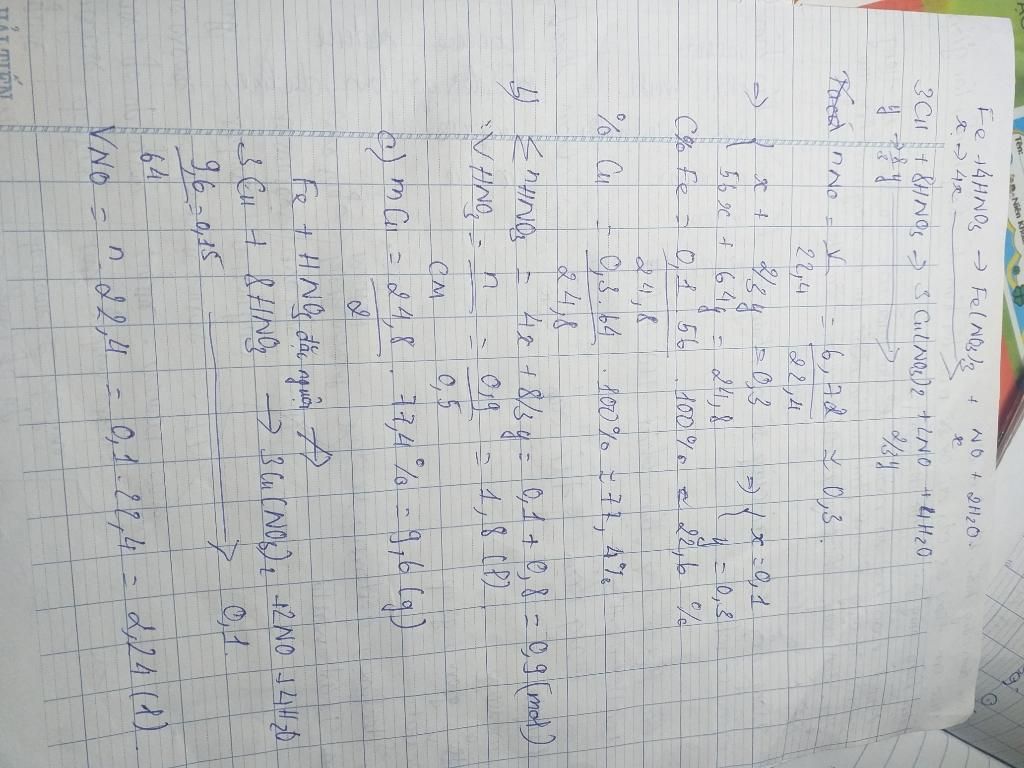 Fe + 4HNO3 → Fe(NO3)3 + NO + 2H2O.
x → 4x x
3Cu + 8HNO3 → 3Cu(NO3)2 + 2NO + 4H2O
y → 8/3y 2/3y
nNO = V/22,4 = 6,72/22,4 = 0,3.
=> { x + 2/3y = 0,3 => { x = 0,1
56x + 64y = 24,8 y = 0,3
C% Fe = 0,1.56/24,8 . 100% ≈ 22,6 %
% Cu = 0,3.64/24,8 . 100% ≈ 77,4%
b) ΣnHNO3 = 4x + 8/3y = 0,1 + 0,8 = 0,9 (mol)
VHNO3 = n/CM = 0,9/0,5 = 1,8 (l).
c) mCu = 24,8/2 . 77,4% = 9,6 (g)
Fe + HNO3 đặc nguội
3Cu + 8HNO3 → 3Cu(NO3)2 + 2NO + 4H2O
9,6/64 = 0,15 → 0,1
VNO = n.22,4 = 0,1.22,4 = 2,24 (l).